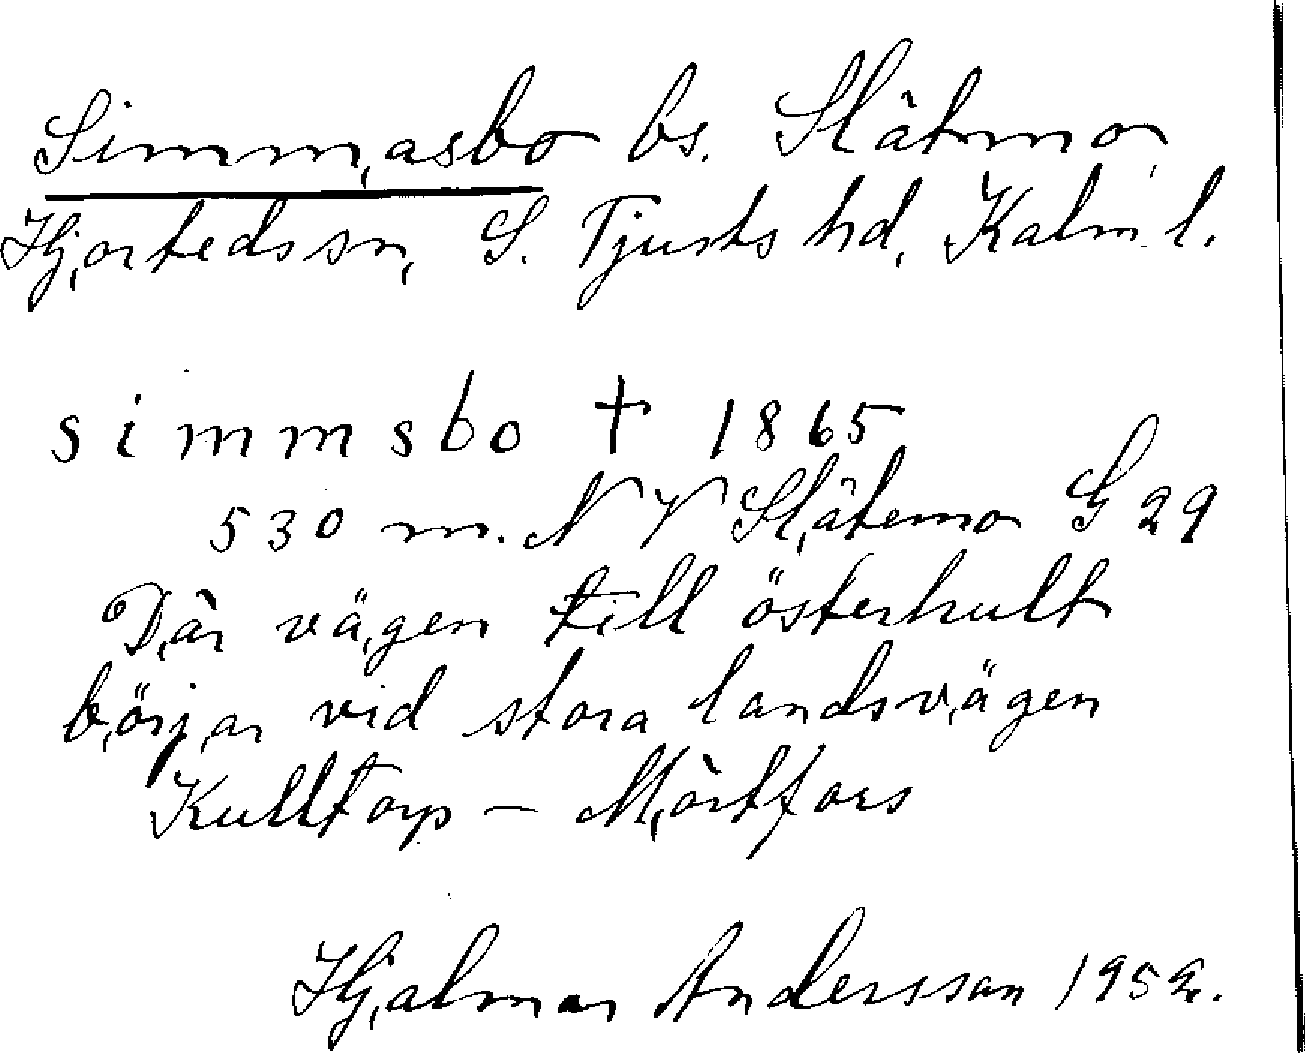 Simmasbo bs. Slätmo
Hjorteds sn, S. Tjusts hd, Kalm. l.
simmsbo † 1865
530 m. NV Slätemo G 29
Där vägen till österhult
börjar vid stora landsvägen
Kulltorp – Mörtfors
Hjalmar Andersson 1952.